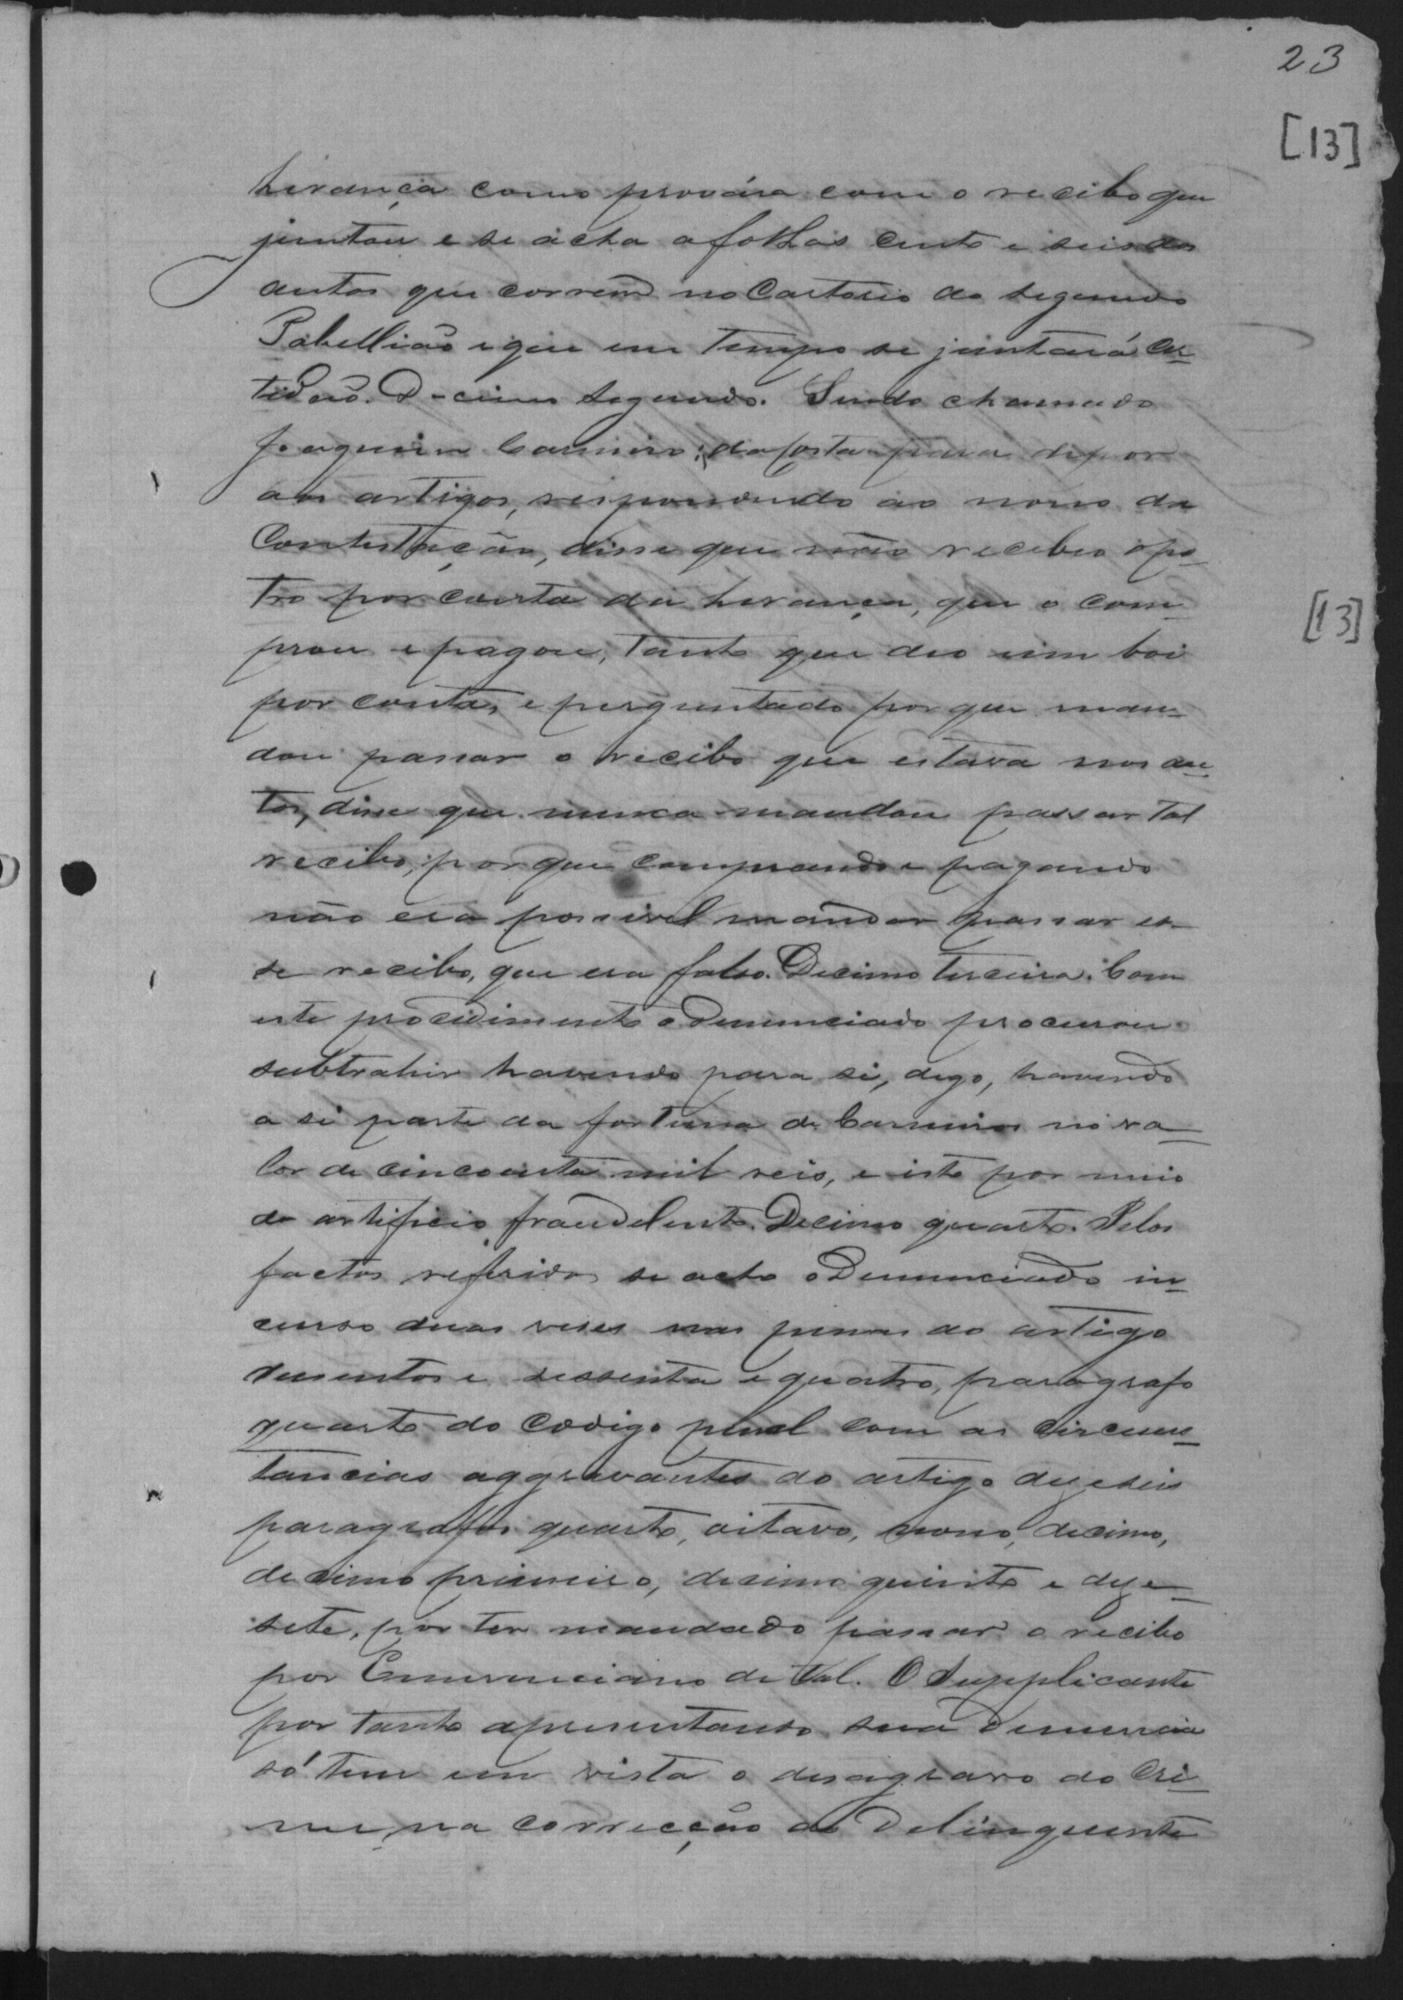 23
[13]
herança como provára com o recibo que
juntou e se acha a folhas cento e seis dos
autos que correm no Cartorio do segundo
Tabellião e que em tempo se juntará Cer-
tidão. Decimo segundo. Sendo chamado
Joaquim Carneiro da Costa para depor
aos artigos, respondendo ao nono da
Contestação, disse que não recebeo o po-
tro por conta da herança, que o com-
prou e pagou, tanto que deo um boi
por conta, e perguntado por que man-
dou passar o recibo que estava nos au-
tos, disse que nunca mandou passar tal
recibo, por que comprando e pagando
não era possivel mandar passar es-
se recibo, que era falso. Decimo terceiro. Com
este procedimento o Denunciado procurou
subtrahir havendo para si, digo, havendo
a si parte da fortuna de Carneiro no va-
lor de cincoenta mil reis, e isto por meio
do artificio fraudulento. Decimo quarto. Pelos
factos referidos se acha o Denunciado in-
curso duas veses nas penas do artigo
dusentos e sessenta e quatro, paragrafo
quarto do codigo penal com as circuns-
tancias aggravantes do artigo deseseis
paragrafos quarto, oitavo, nono, decimo,
decimo primeiro, decimo quinto e deze-
sete, por ter mandado passar o recibo
por Emerenciano de tal. O Supplicante
por tanto apresentando sua denuncia
só tem em vista o desagravo do Cri-
me, na correcção do Delinquente
[13]